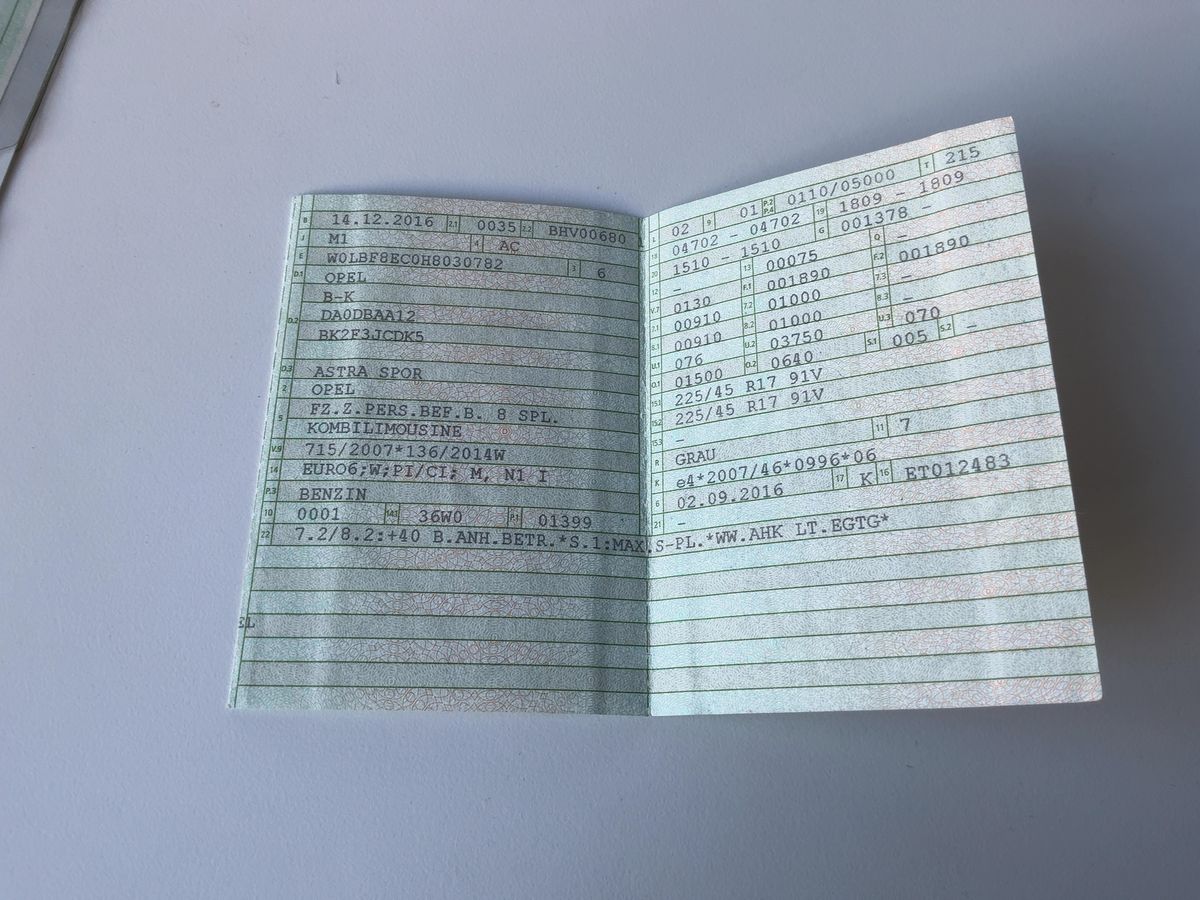 B 14.12.2016 2.1 0035 2.2 BHV00680
J M1 4 AC
E W0LBF8EC0H8030782 3 6
D.1 OPEL
B-K
D.2 DA0DBAA12
BK2F3JCDK5
D.3 ASTRA SPOR
2 OPEL
5 FZ.Z.PERS.BEF.B. 8 SPL.
KOMBILIMOUSINE
V.9 715/2007*136/2014W
14 EURO6;W;PI/CI; M, N1 I
P.3 BENZIN
10 0001 14.1 36W0 P.1 01399
22 7.2/8.2:+40 B.ANH.BETR.*S.1:MAX.S-PL.*WW.AHK LT.EGTG*
EL
L 02 9 01 P.2 P.4 0110/05000 T 215
18 04702 - 04702 19 1809 - 1809
20 1510 - 1510 G 001378 -
12 - 13 00075 Q -
V.7 0130 F.1 001890 F.2 001890
7.1 00910 7.2 01000 7.3 -
8.1 00910 8.2 01000 8.3 -
U.1 076 U.2 03750 U.3 070
O.1 01500 O.2 0640 S.1 005 S.2 -
15.1 225/45 R17 91V
15.2 225/45 R17 91V
15.3 -
R GRAU 11 7
K e4*2007/46*0996*06
6 02.09.2016 17 K 16 ET012483
21 -